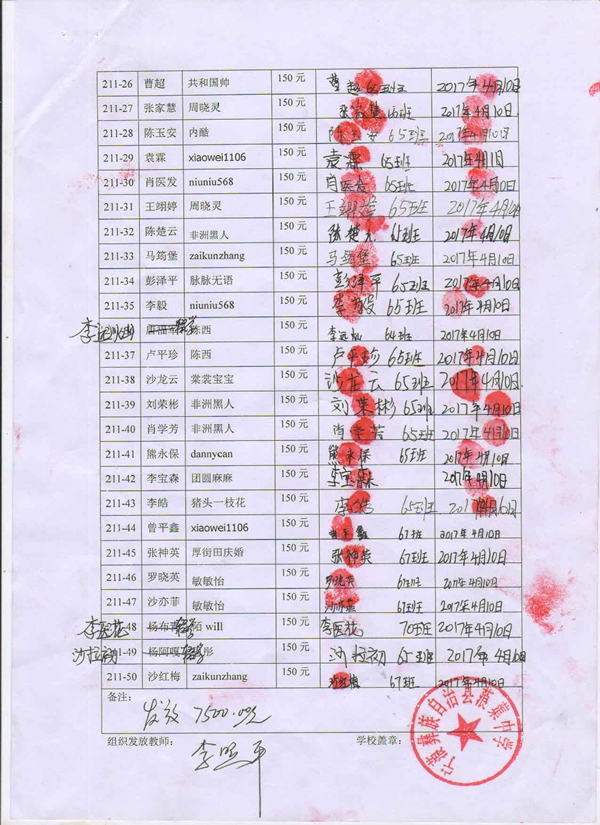 211-26 曹超 共和国帅 150元 曹超 65班 2017年4月10日
211-27 张家慧 周晓灵 150元 张家慧 65班 2017年4月10日
211-28 陈玉安 内酷 150元 65班 2017年4月10日
211-29 袁霖 xiaowei1106 150元 袁霖 65班 2017年4月1日
211-30 肖医发 niuniu568 150元 肖医发 65班 2017年4月10日
211-31 王翊婷 周晓灵 150元 王翊婷 65班 2017年4月10日
211-32 陈楚云 非洲黑人 150元 65班 2017年4月10日
211-33 马筠堡 zaikunzhang 150元 马筠堡 65班 2017年4月10日
211-34 彭泽平 脉脉无语 150元 彭泽平 65班 2017年4月10日
211-35 李毅 niuniu568 150元 李毅 65班 2017年4月10日
陈西 150元 李远灿 64班 2017年4月10日
211-37 卢平珍 陈西 150元 卢平珍 65班 2017年4月10日
211-38 沙龙云 棠棠宝宝 150元 沙龙云 65班 2017年4月10日
211-39 刘荣彬 非洲黑人 150元 刘荣彬 65班 2017年4月10日
211-40 肖学芳 非洲黑人 150元 肖学芳 65班 2017年4月10日
211-41 熊永保 dannycan 150元 熊永保 65班 2017年4月10日
211-42 李宝森 团圆麻麻 150元 李宝森 2017年4月10日
211-43 李皓 猪头一枝花 150元 李皓 65班 2017年4月10日
211-44 曾平鑫 xiaowei1106 150元 67班 2017年4月10日
211-45 张神英 厚街田庆婚 150元 张神英 67班 2017年4月10日
211-46 罗晓英 敏敏怡 150元 罗晓英 67班 2017年4月10日
211-47 沙亦菲 敏敏怡 150元 沙亦菲 67班 2017年4月10日
李医花 -48 杨布 will 150元 李医花 70班 2017年4月10日
沙拉初 211-49 杨阿嘎 彤 150元 沙拉初 65班 2017年4月10日
211-50 沙红梅 zaikunzhang 150元 沙红梅 67班 2017年4月10日
备注：
发放 7500.00元
组织发放教师： 学校盖章：
宁蒗彝族自治县蒗蕖中学